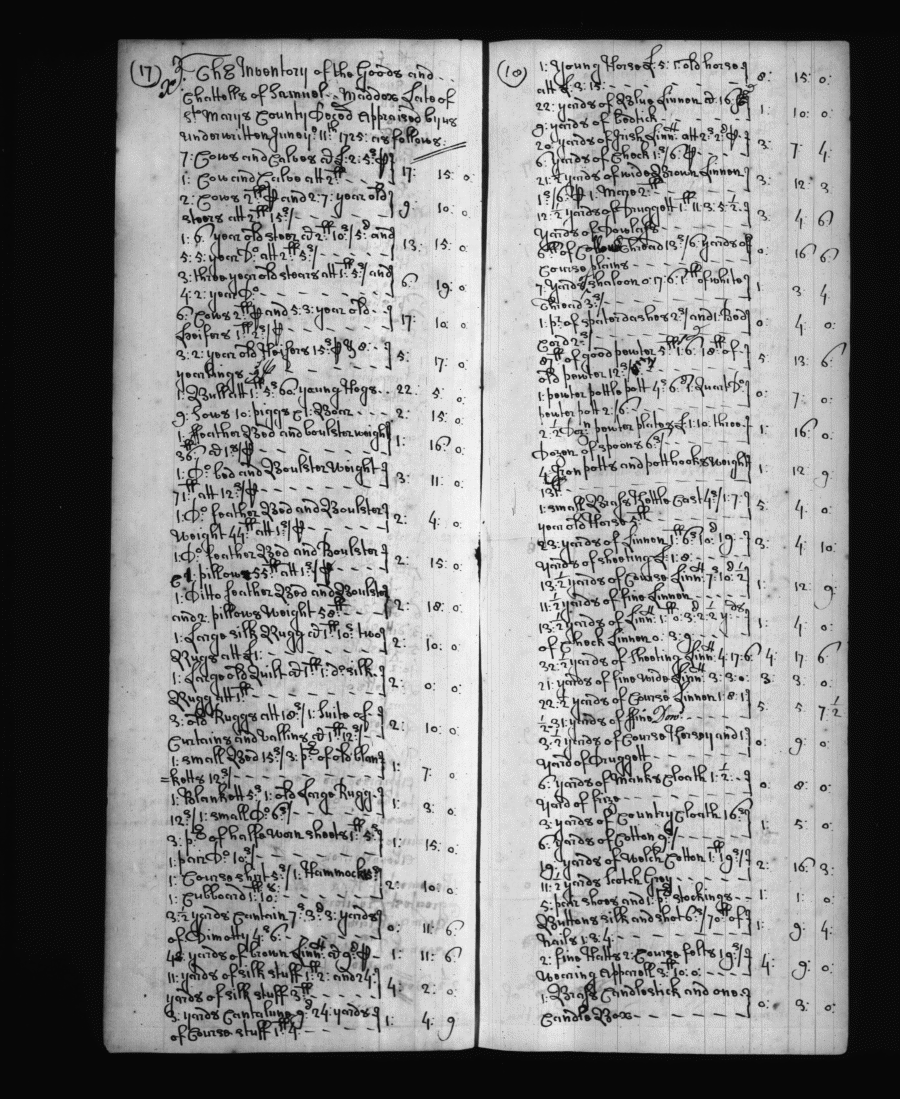 (17) The Inventory of the Goods and
Chattells of Samuel Maddox Late of
St. Marys County Deced Appraised by us
underwritten June ye 11th 1725: as follows
7: Cows and Calves @ £:2:5:
1: Cow and Calve att 2 17: 15: 0:
2: Cows 2 and 2: 7: year old
steers att 2 15: 9: 10: 0
1: 6 year old steer @ 2: 10: and
5: 5: year Do: att 2: 5: 13: 15: 0
3: three year old steers att 1: 5: and
4: 2: year Do. 6: 19: 0
6: Cows 2 and 5: 3: year old
Heifers 17: 10: 0
3: 2: year old Heifers 15: 8:
yearlings 5: 17: 0
1: Bull att 1: 5: 60: young Hogs 22: 5: 0
9: Sows 10: piggs & 1: Boar 2: 15: 0
1: Feather Bed and boulster weight
36 @ 1: 16: 0
1: Do: bed and Boulster Weight
71: att 12: 3: 11: 0
1: Do: feather Bed and Boulster
Weight 44 att 1 2: 4: 0
1: Do: feather Bed and Boulster
& 1: pillow 55 att 1 2: 15: 0
1: Ditto feather Bed and Boulster
and 2: pillows Weight 58 2: 18: 0
1: Large silk Rugg @ 1: 10: two
Rugs att £1: 2: 10: 0
1: Large old Quilt @ 1: 1: do silk
Rugg att 1 2: 0: 0
3: old Ruggs att 18: 1: Suite of
Curtains and Vallins @ 1: 12: 2: 10: 0
1: small Bed 15: 3: pr of old blan
=ketts 12: 1: 7: 0
1: Blankett 5: 1: old Large Rugg
12: 1: small Do: 6: 1: 3: 0
3: pr of halfe worn sheets 1: 5:
1: pair Do: 10: 1: 15: 0
1: Course shirt 5: 1: Hammock
1: Cubboard 1: 10: 2: 10: 0
3:½ yards Cantain 7: 3: 3: yards
of Dimotty 4: 6: 0: 11: 6
42: yards of brown Linn: @ 9: 1: 11: 6
11: yards of silk stuff 1: 2: and 24:
yards of silk stuff 3 4: 2: 0
3: yards Cantalune 9: 24 yards
of Course stuff 1: 4 1: 4: 9
(18) 1: Young Horse £: 5: 1: old horse
att £: 3: 15: 8: 15: 0:
22: yards of Blue Linnen @ 16
9: yards of Bedtick 1: 10: 0:
20: yards of Irish Linn: att 2: 2:
6: yards of Check 1: 6 3: 7: 4:
21:½ yards of wide Brown Linnen
1: 6: 1: Mare 2: 3: 12: 3
12:½ yards of Druggett 1: 11: 3: 5:½
yards of Dowlas 3: 4: 6
6: of thread 13: 6: yards of
Course plains 0: 16: 6:
7: yards Shaloon 0: 17: 6: 1 of white
thread 3: 1: 3: 4
1: pr: of spaterdashes 2: and 1: Bed
Cord 2: 0: 4: 0:
87 of good pewter 5: 1: 6: 18: of
old pewter 12: 5: 13: 6
1: pewter pottle pott 4: 6: 1: Quart Do:
pewter pott 2: 6: 0: 7: 0:
2:½ Dozn pewter plates £: 1: 10: three
Dozen of spoons 6: 1: 16: 0:
4: Iron potts and potthooks weight
131 1: 12: 9:
1: small Brass Kettle Cast 4: 1: 7:
year old Horse 5: 5: 4: 0:
23: yards of Linnen 1: 6: 10: 19:
yards of sheeting £: 1: 8: 3: 4: 10:
13:½ yards of Course Linn: 7: 10:½
11:½ yards of fine Linnen 1: 12: 9:
13:½ yards of Linn: 1: 0: 3: 2:½ yds
of Check Linnen 0: 3: 9: 1: 4: 0:
32:½ yards of Sheeting Linn: 4: 17: 6 4: 17: 6
21: yards of fine wide Linn: 3: 3: 0: 3: 3: 0:
22:½ yards of Course Linnen 1: 8: 1
½ 31: yards of fine Do 5: 5: 7:½
3:½ yards of Course Kersey and 1
yard of Druggett 0: 9: 0:
6: yards of Manks Cloath 1:½
yard of frize 0: 8: 0:
3: yards of Country Cloath 16:
6: yards of Cotton 9: 1: 5: 0:
19: yards of Welch Cotton 1: 19:
11:½ yards Scotch Grey 2: 16: 3:
5: pair shoes and 1: pr stockings 1: 1: 0:
Buttons silk and shot 6: 70 of
Nails 1: 3: 4: 1: 9: 4:
2: fine Hatts 2: Course felts 19:
Wearing Apparell 3: 10: 0: 4: 9: 0:
1: Brass Candlestick and one
Candle Box 0: 3: 0: